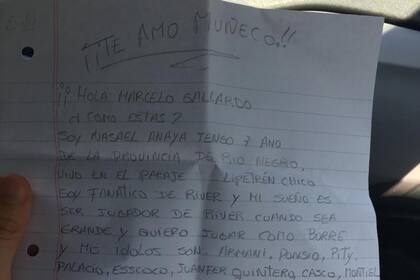 ¡¡TE AMO MUÑECO.!!
¡¡ HOLA MARCELO GALLARDO
¿ COMO ESTAS ?
SOY NASAEL ANAYA TENGO 7 AÑO
DE LA PROVINCIA DE RIO NEGRO,
VIVO EN EL PARAJE LIPETRÉN CHICO
SOY FANÁTICO DE RIVER Y MI SUEÑO ES
SER JUGADOR DE RIVER CUANDO SEA
GRANDE Y QUIERO JUGAR COMO BORRE
Y MIS IDOLOS SON: ARMANI, PONSIO, PITY,
PALACIO, ESSCOCO, JUANFER QUINTERO, CASCO, MONTIEL